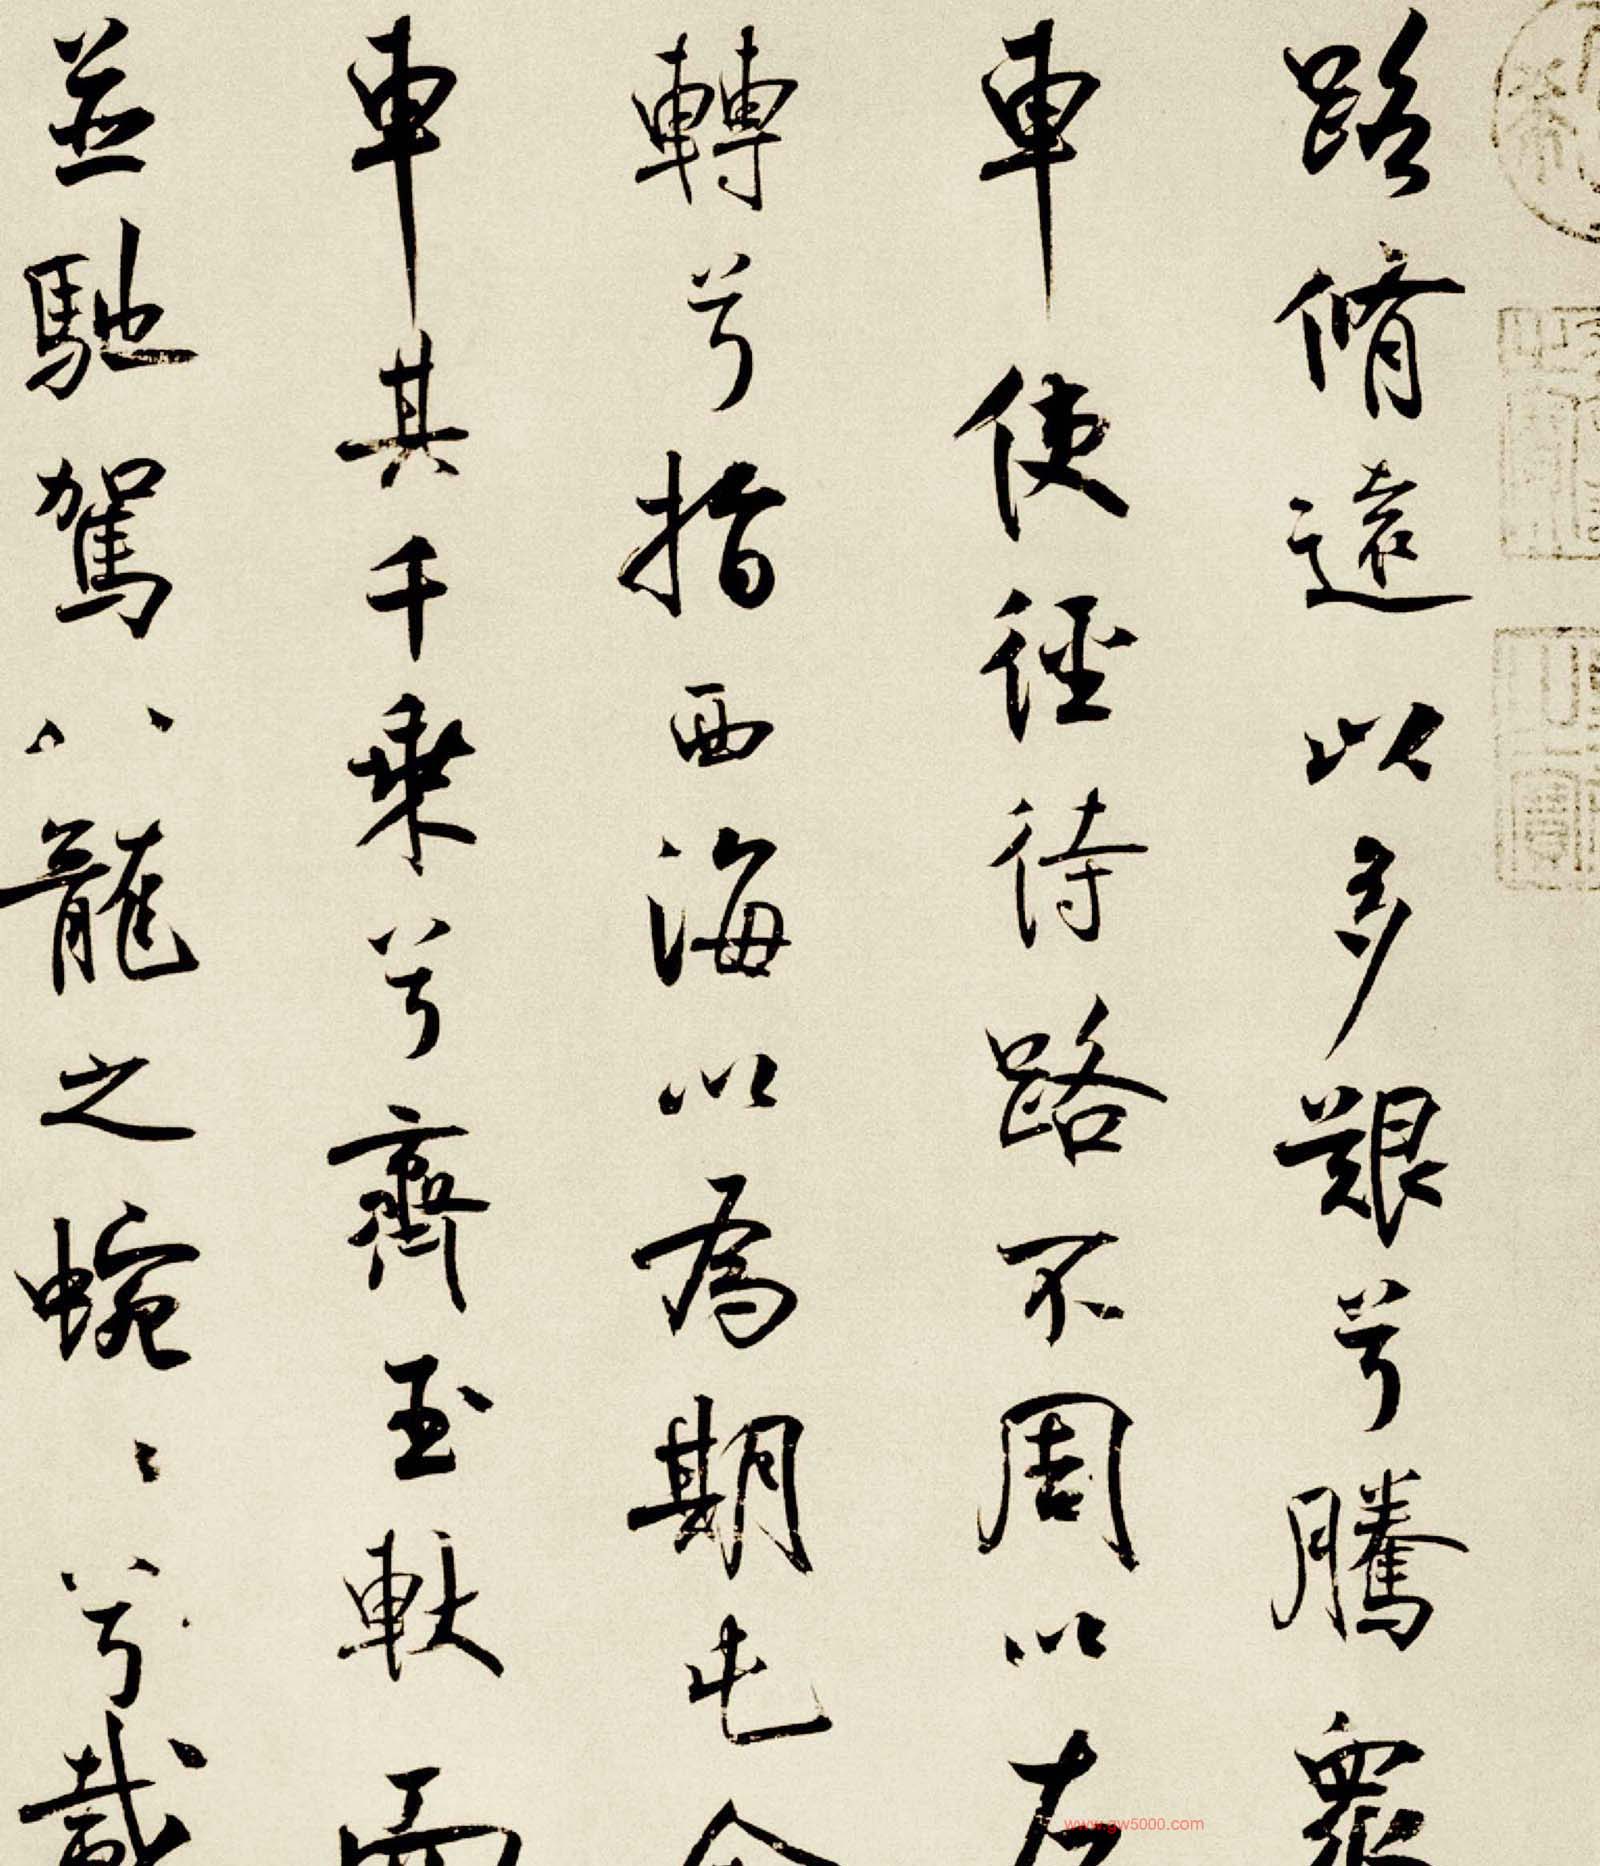 路脩遠以多艱兮騰眾
車使徑待路不周以左
轉兮指西海以為期屯余
車其千乘兮齊玉軑而
並馳駕八龍之蜿〻兮載
www.gw5000.com